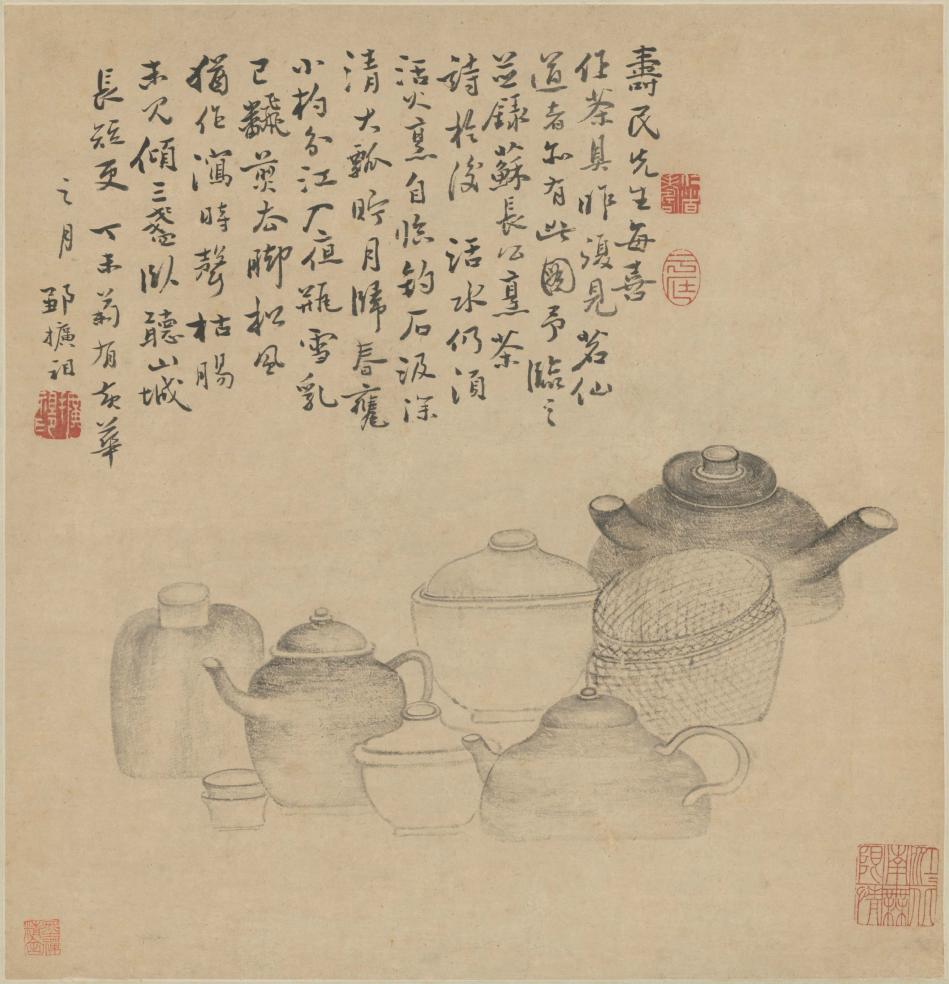 壽民先生每喜
作茶具昨復見茗仙
道者亦有此圖予臨之
並錄蘇長公烹茶
詩於後 活水仍須
活火烹自臨釣石汲深
清大瓢貯月歸春甕
小杓分江入夜瓶雪乳
已飜煎處腳松風
猶作瀉時聲枯腸
未免傾三盞臥聽山城
長短更 丁未菊有黃華
之月 鄒擴祖